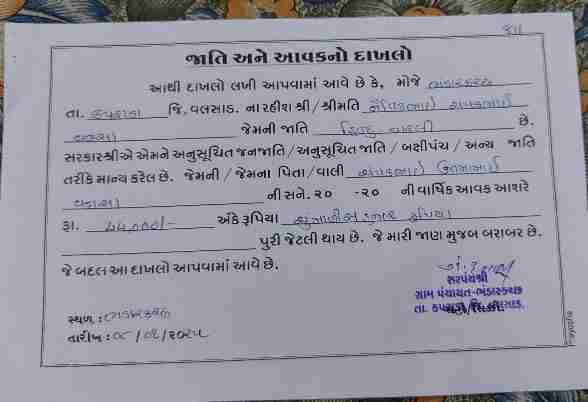 જાતિ અને આવકનો દાખલો
આથી દાખલો લખી આપવામાં આવે છે કે, મોજે ભંડારકચ્છ
તા. કપરાડા જિ. વલસાડ. ના રહીશ શ્રી / શ્રીમતિ
જેમની જાતિ હિન્દુ વારલી છે.
સરકારશ્રીએ એમને અનુસૂચિત જનજાતિ / અનુસૂચિત જાતિ / બક્ષીપંચ / અન્ય જાતિ
તરીકે માન્ય કરેલ છે. જેમની / જેમના પિતા / વાલી
ની સને. ૨૦ -૨૦ ની વાર્ષિક આવક આશરે
રૂા. અંકે રૂપિયા હજાર રૂપિયા
પુરી જેટલી થાય છે. જે મારી જાણ મુજબ બરાબર છે.
જે બદલ આ દાખલો આપવામાં આવે છે.
સરપંચશ્રી
ગ્રામ પંચાયત-ભંડારકચ્છ
તા. કપરાડા, જિ. વલસાડ.
સ્થળ : ભંડારકચ્છ
તારીખ :